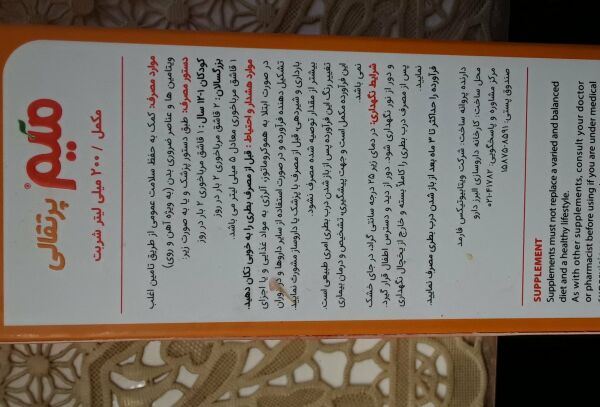 میم
پرتقالی
مکمل / ۲۰۰ میلی لیتر شربت
موارد مصرف: کمک به حفظ سلامت عمومی از طریق تامین اغلب
ویتامین ها و عناصر ضروری بدن (به ویژه آهن و روی)
دستور مصرف: طبق دستور پزشک و یا به صورت زیر:
کودکان ۱-۱۲ سال: ۱ قاشق مرباخوری ۲ بار در روز
بزرگسالان: ۲ قاشق مرباخوری ۲ بار در روز
۱ قاشق مرباخوری معادل ۵ میلی لیتر می باشد.
موارد هشدار و احتیاط: قبل از مصرف بطری را به خوبی تکان دهید.
در صورت ابتلا به هموکروماتوز، آلرژی به مواد غذایی و یا اجزای
تشکیل دهنده فرآورده و در صورت استفاده از سایر داروها و در دوران
بارداری و شیردهی، قبل از مصرف با پزشک یا داروساز مشورت نمایید.
بیشتر از مقدار توصیه شده مصرف نشود.
تغییر رنگ این فرآورده پس از باز شدن درب بطری امری طبیعی است.
این فرآورده مکمل است و جهت پیشگیری، تشخیص و درمان بیماری
نمی باشد.
شرایط نگهداری: در دمای زیر ۲۵ درجه سانتی گراد، در جای خشک
و دور از نور نگهداری شود. دور از دید و دسترس اطفال قرار گیرد.
پس از مصرف درب بطری را کاملاً بسته و خارج از یخچال نگهداری
نمایید.
فرآورده را حداکثر تا ۳ ماه بعد از باز شدن درب بطری مصرف نمایید.
دارنده پروانه ساخت: شرکت ویتابیوتیکس فارمد
محل ساخت: کارخانه داروسازی البرز دارو
مرکز مشاوره و پاسخگویی:
صندوق پستی:
SUPPLEMENT
Supplements must not replace a varied and balanced
diet and a healthy lifestyle.
As with other supplements, consult your doctor
or pharmacist before using if you are under medical